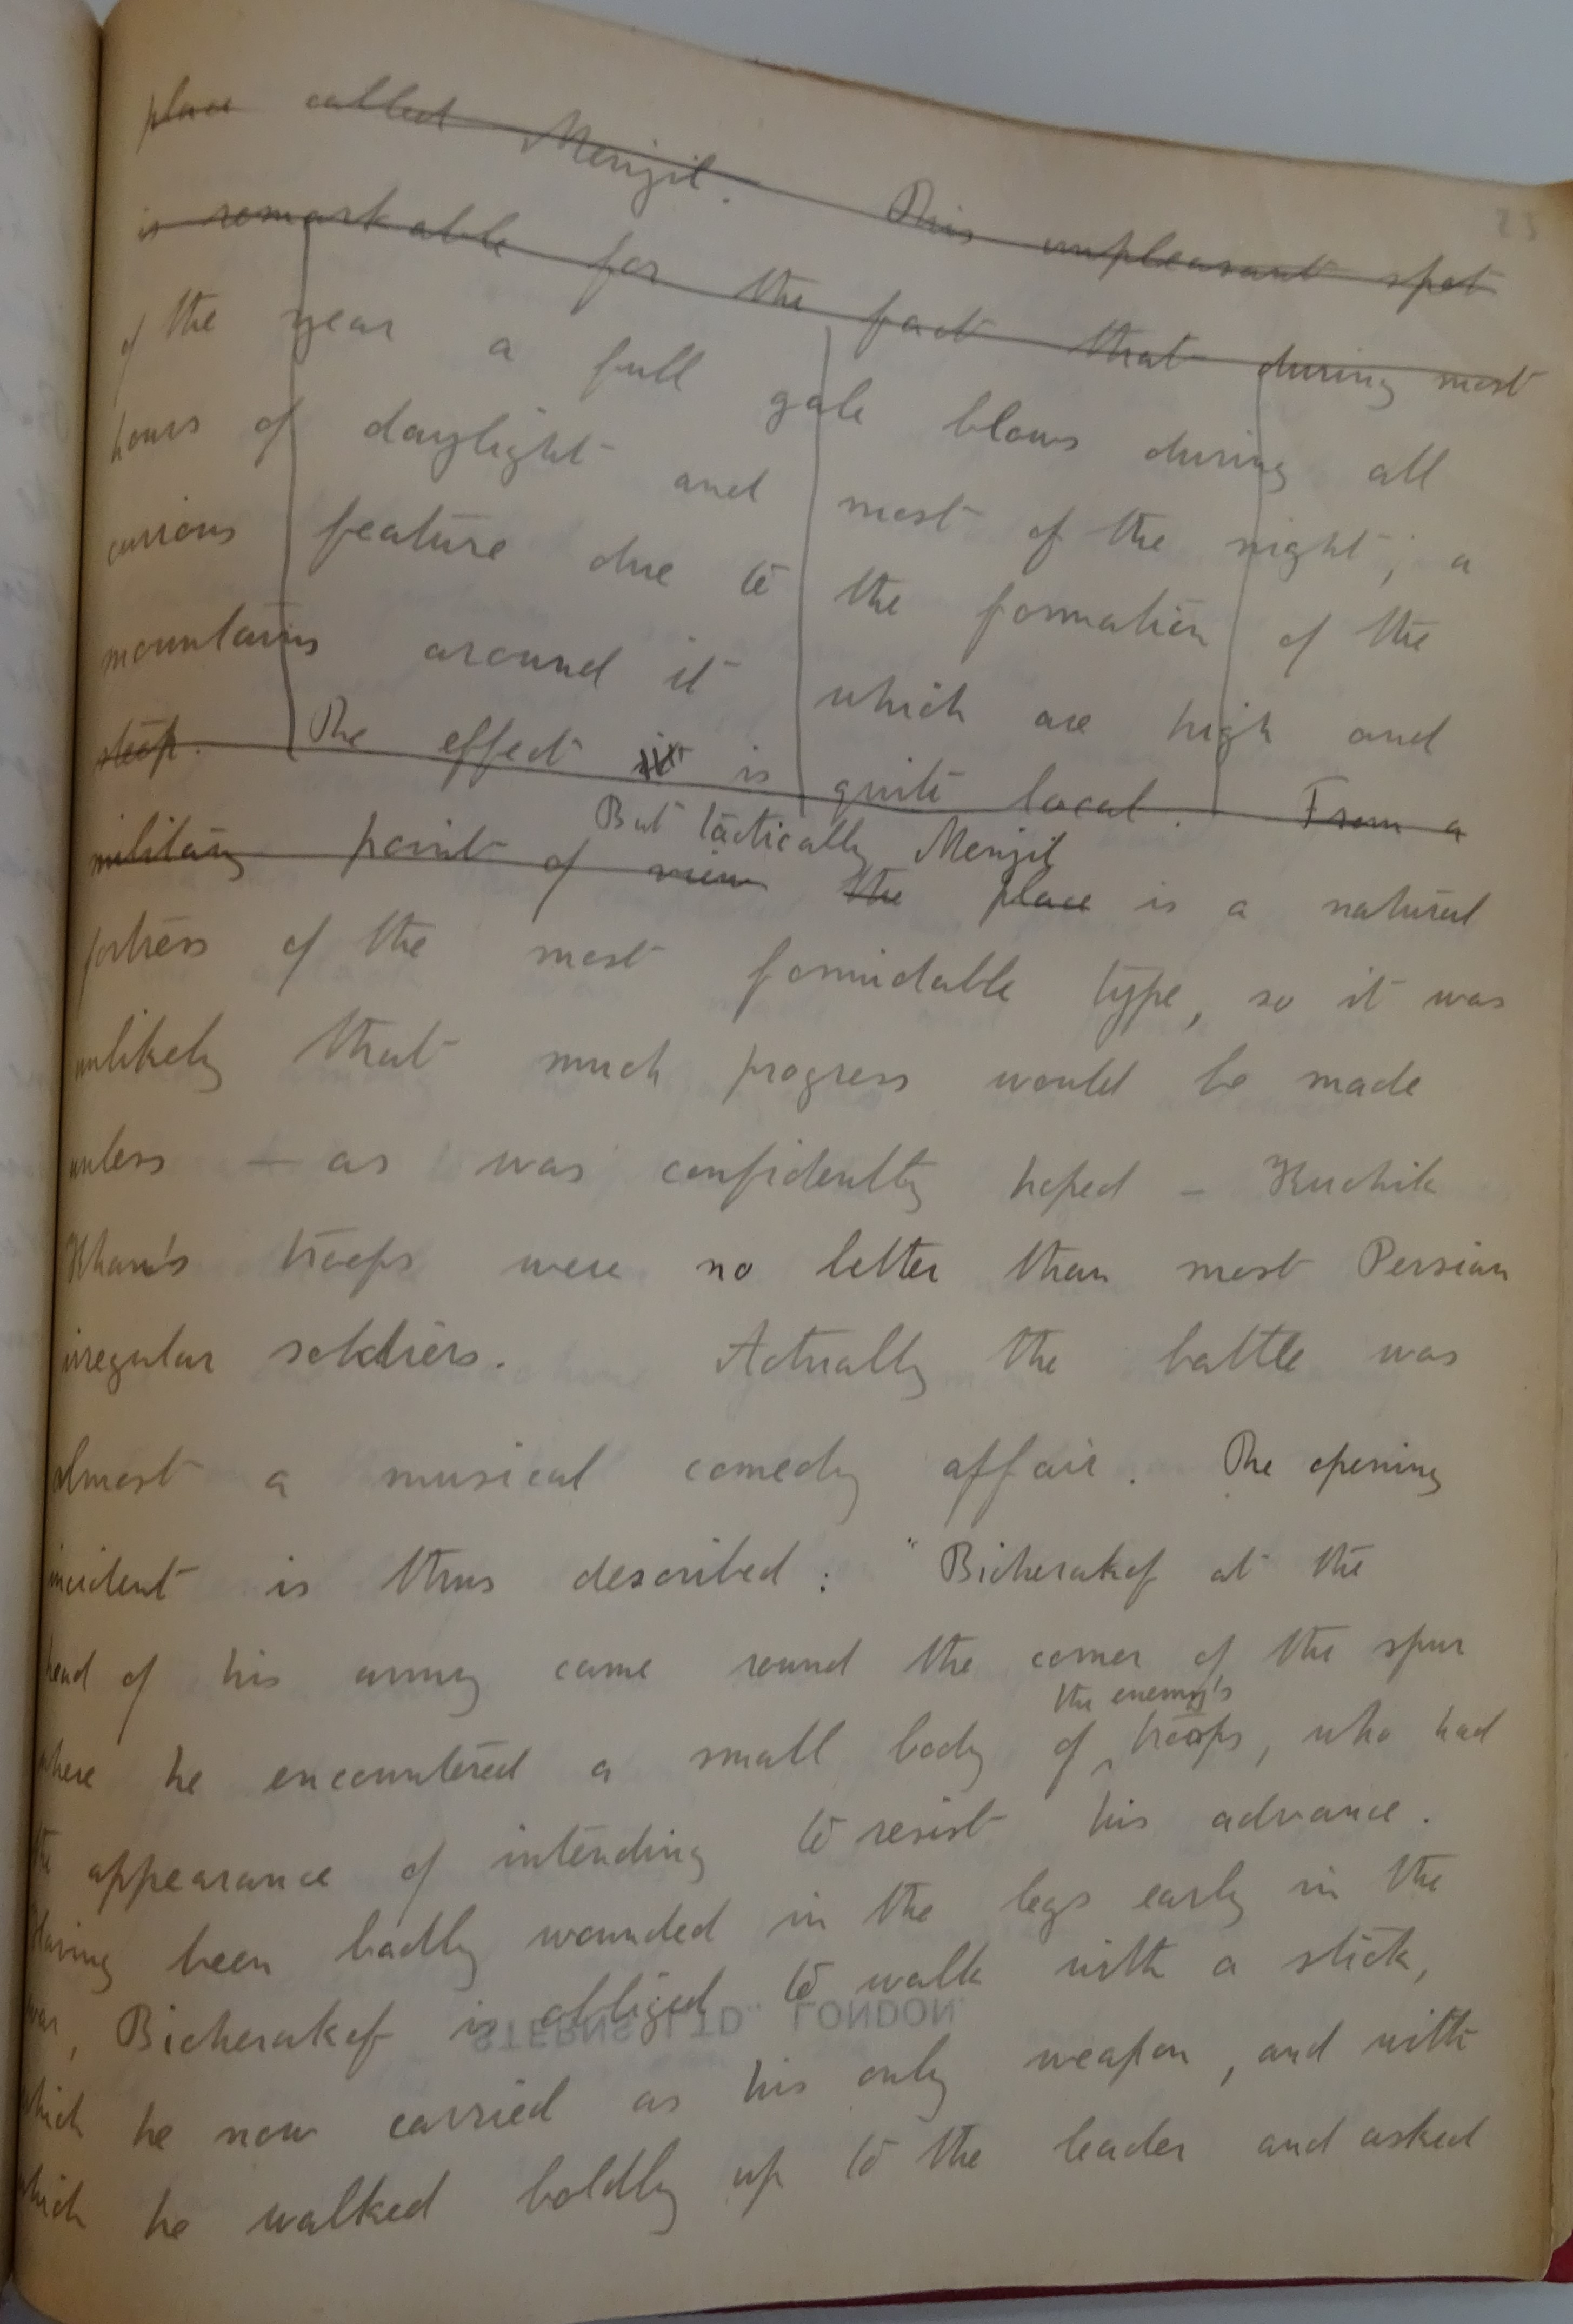 place called Menjil. This unpleasant spot
is remarkable for the fact that during most
of the year a full gale blows during all
hours of daylight and most of the night; a
curious feature due to the formation of the
mountains around it which are high and
steep. The effect is quite local. From a
military point of view the place is a natural
But tactically Menjil
fortress of the most formidable type, so it was
unlikely that much progress would be made
unless — as was confidently hoped – Kuchik
Khan's troops were no better than most Persian
irregular soldiers. Actually the battle was
almost a musical comedy affair. The opening
incident is thus described: "Bicherakof at the
head of his army came round the corner of the spur
the enemy's
where he encountered a small body of troops, who had
the appearance of intending to resist his advance.
Having been badly wounded in the legs early in the
war, Bicherakof is obliged to walk with a stick,
STERNS LTD LONDON
which he now carried as his only weapon, and with
which he walked boldly up to the leader and asked